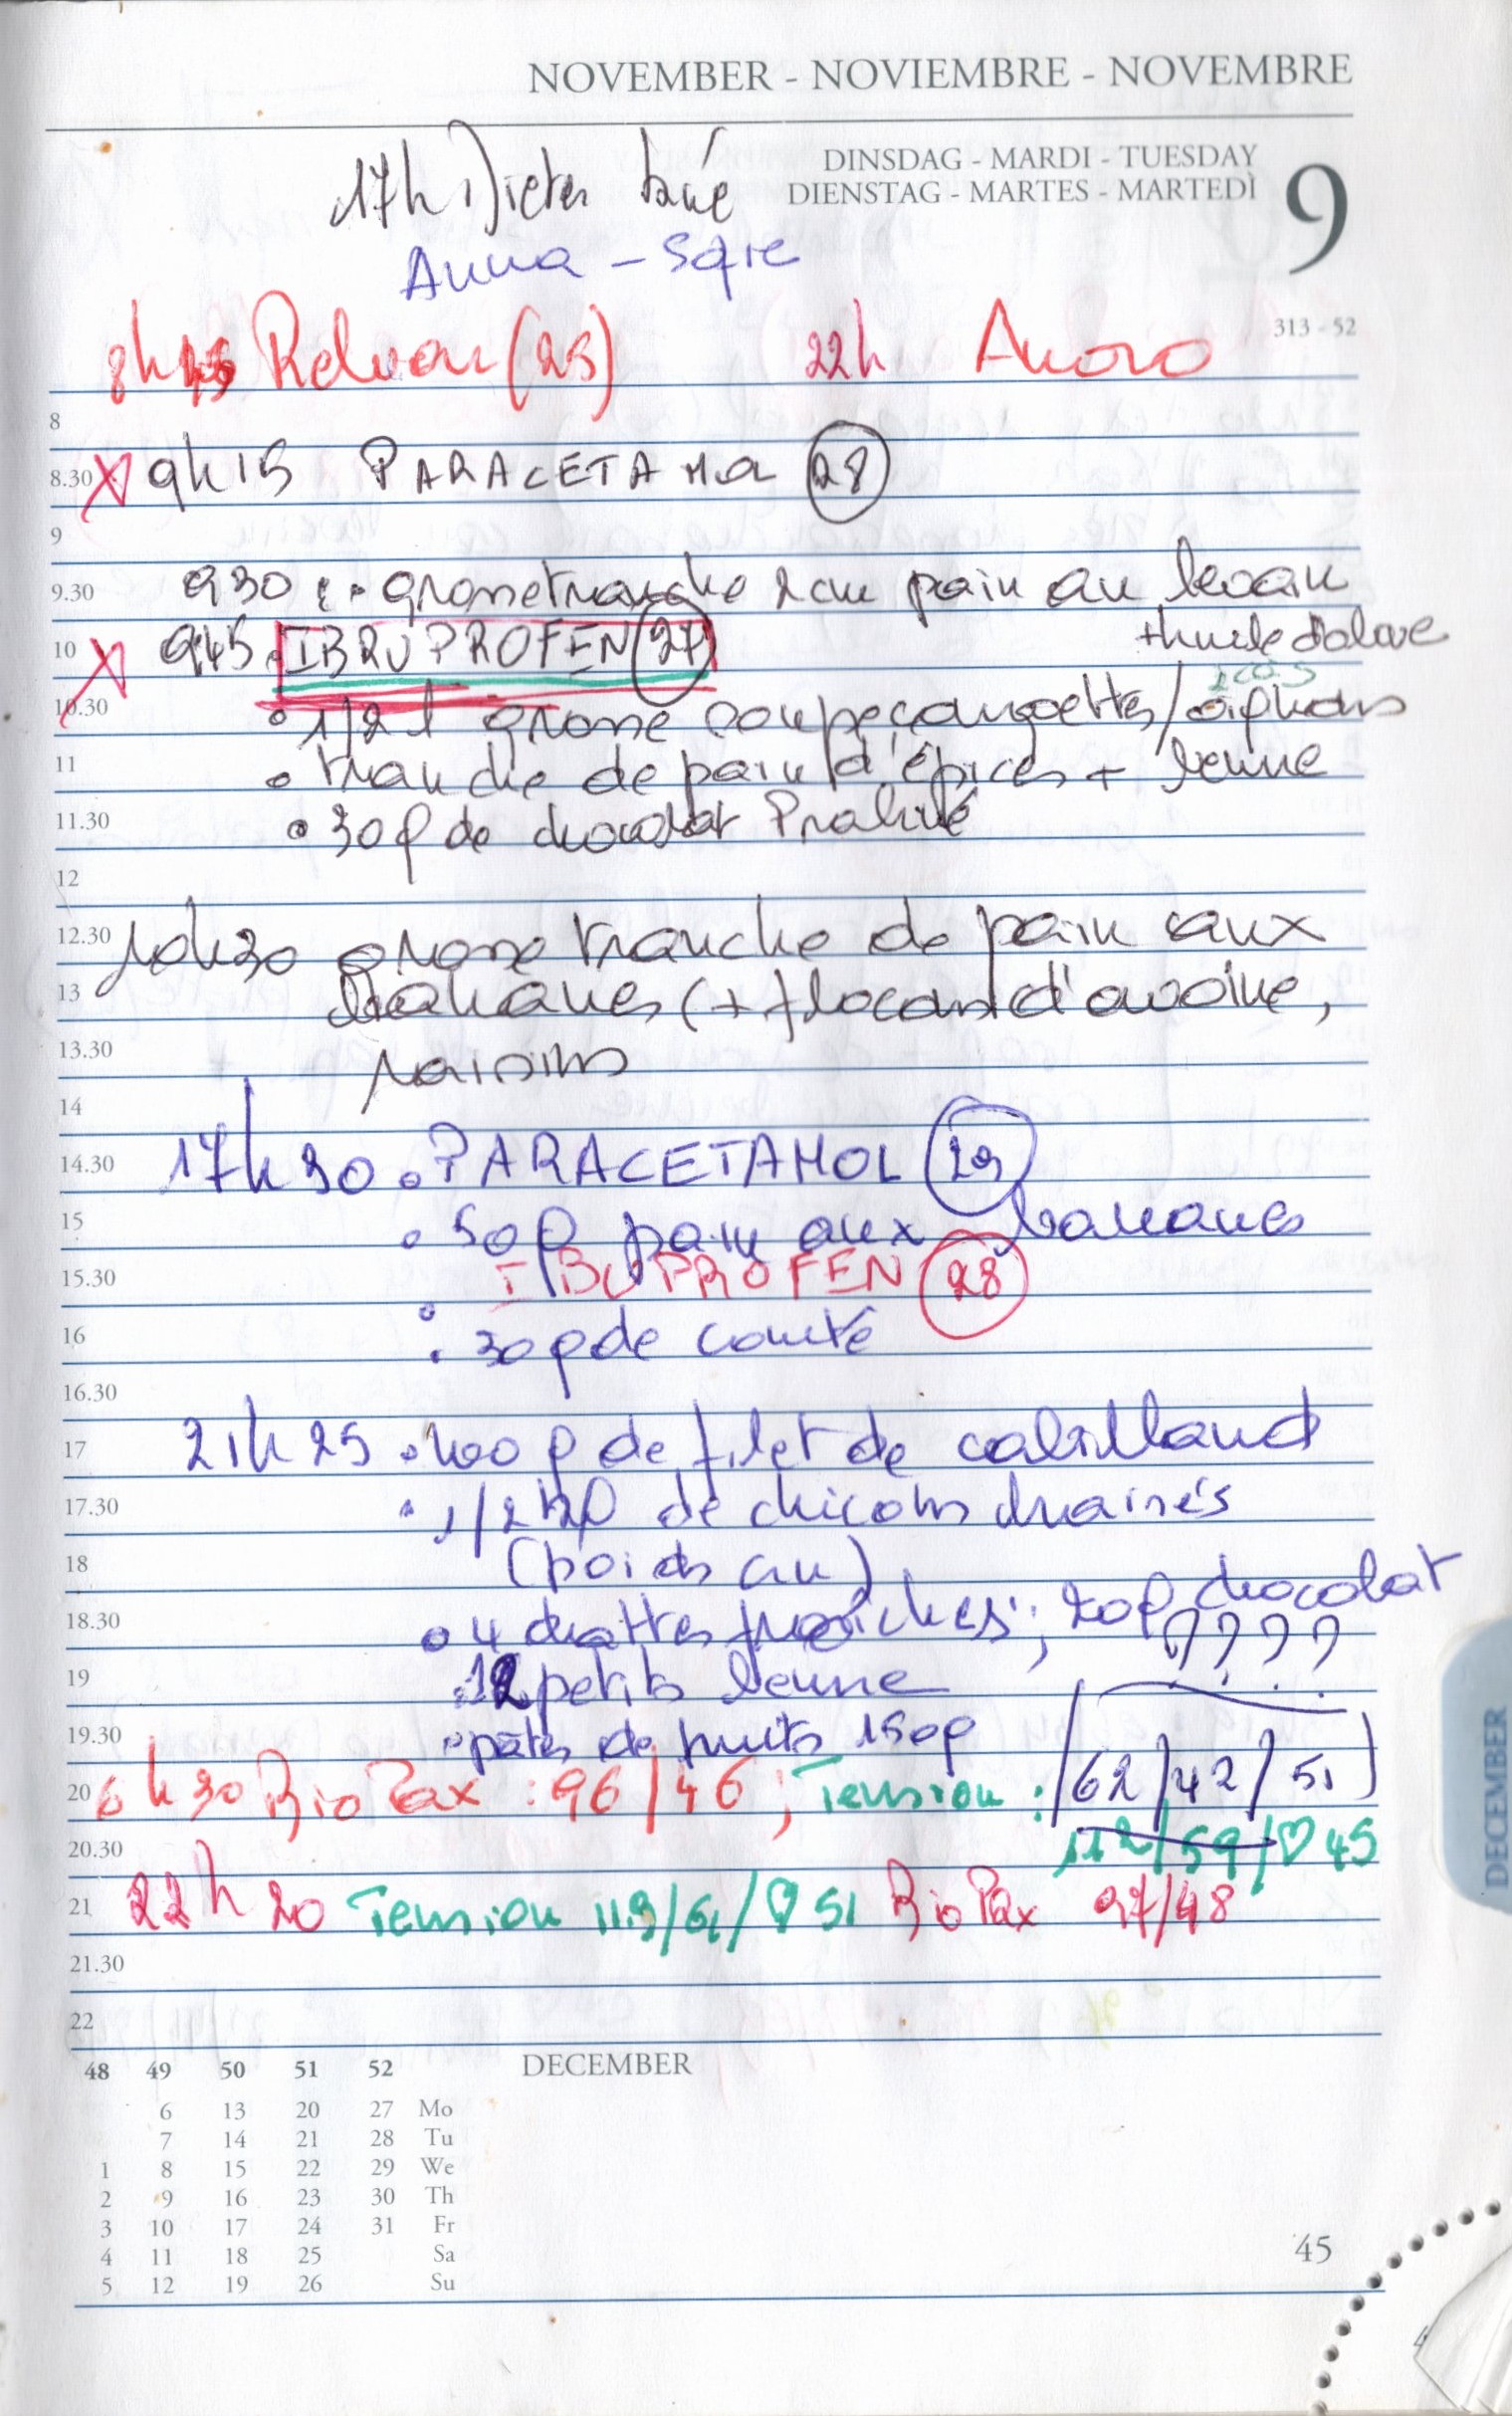 NOVEMBER - NOVIEMBRE - NOVEMBRE
DINSDAG - MARDI - TUESDAY
DIENSTAG - MARTES - MARTEDÌ
9
17h Dieter
Anna - Sofie
313 - 52
8h45 Relvar (25) 22h Anoro
8
8.30 X 9h15 PARACETAMOL 28
9
9.30 930 : • grosse tranche 2cm pain au levain
+ huile d'olive
10 X 945 • IBRUPROFEN 27
10.30 • 1/2 l grosse soupe courgettes/oignons
11 • tranche de pain d'épices + beurre
11.30 • 30g de chocolat Praliné
12
12.30 10h30 grosse tranche de pain aux
13 bananes (+ flocons d'avoine,
13.30 raisins
14
14.30 17h30 • PARACETAMOL 29
15 • 50g pain aux bananes
15.30 IBUPROFEN 28
16 • 30g de comté
16.30
17 21h25 • 400g de filet de cabillaud
17.30 • 1/2 kg de chicons braisés
18 (poids cru)
18.30 • 4 dattes fraîches ; 20g chocolat
????
19 • 12 petits beurre
19.30 • pâtes de fruits 150g
20 6h30 Bio Pax : 96/46 ; Tension : (62/42/51)
20.30 112/59/♡ 45
21 22h20 Tension 113/61/♡ 51 Bio Pax 97/48
21.30
22
48 49 50 51 52 DECEMBER
6 13 20 27 Mo
7 14 21 28 Tu
1 8 15 22 29 We
2 9 16 23 30 Th
3 10 17 24 31 Fr
4 11 18 25 Sa
5 12 19 26 Su
45
DECEMBER